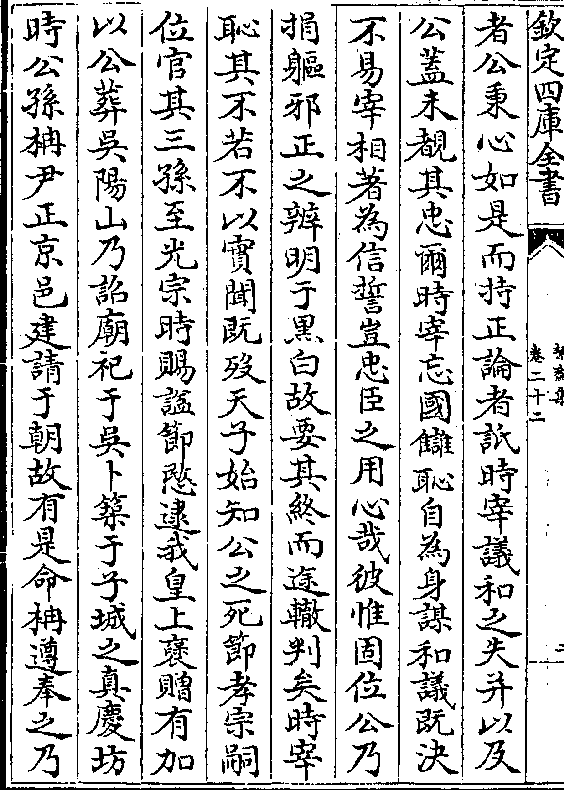 欽定四庫全書
卷二十二
者公秉心如是而持正論者詆時宰議和之失并以及
公蓋未覩其忠爾時宰忘國讎恥自為身謀和議既決
不易宰相著為信誓豈忠臣之用心哉彼惟固位公乃
捐軀邪正之辨明于黒白故要其終而逵轍判矣時宰
恥其不若不以實聞既歿天子始知公之死節孝宗嗣
位官其三孫至光宗時賜謚節愍逮我皇上襃贈有加
以公葬吳陽山乃詔廟祀于吳卜築于子城之真慶坊
時公孫枏尹正京邑建請于朝故有是命枏遵奉之乃